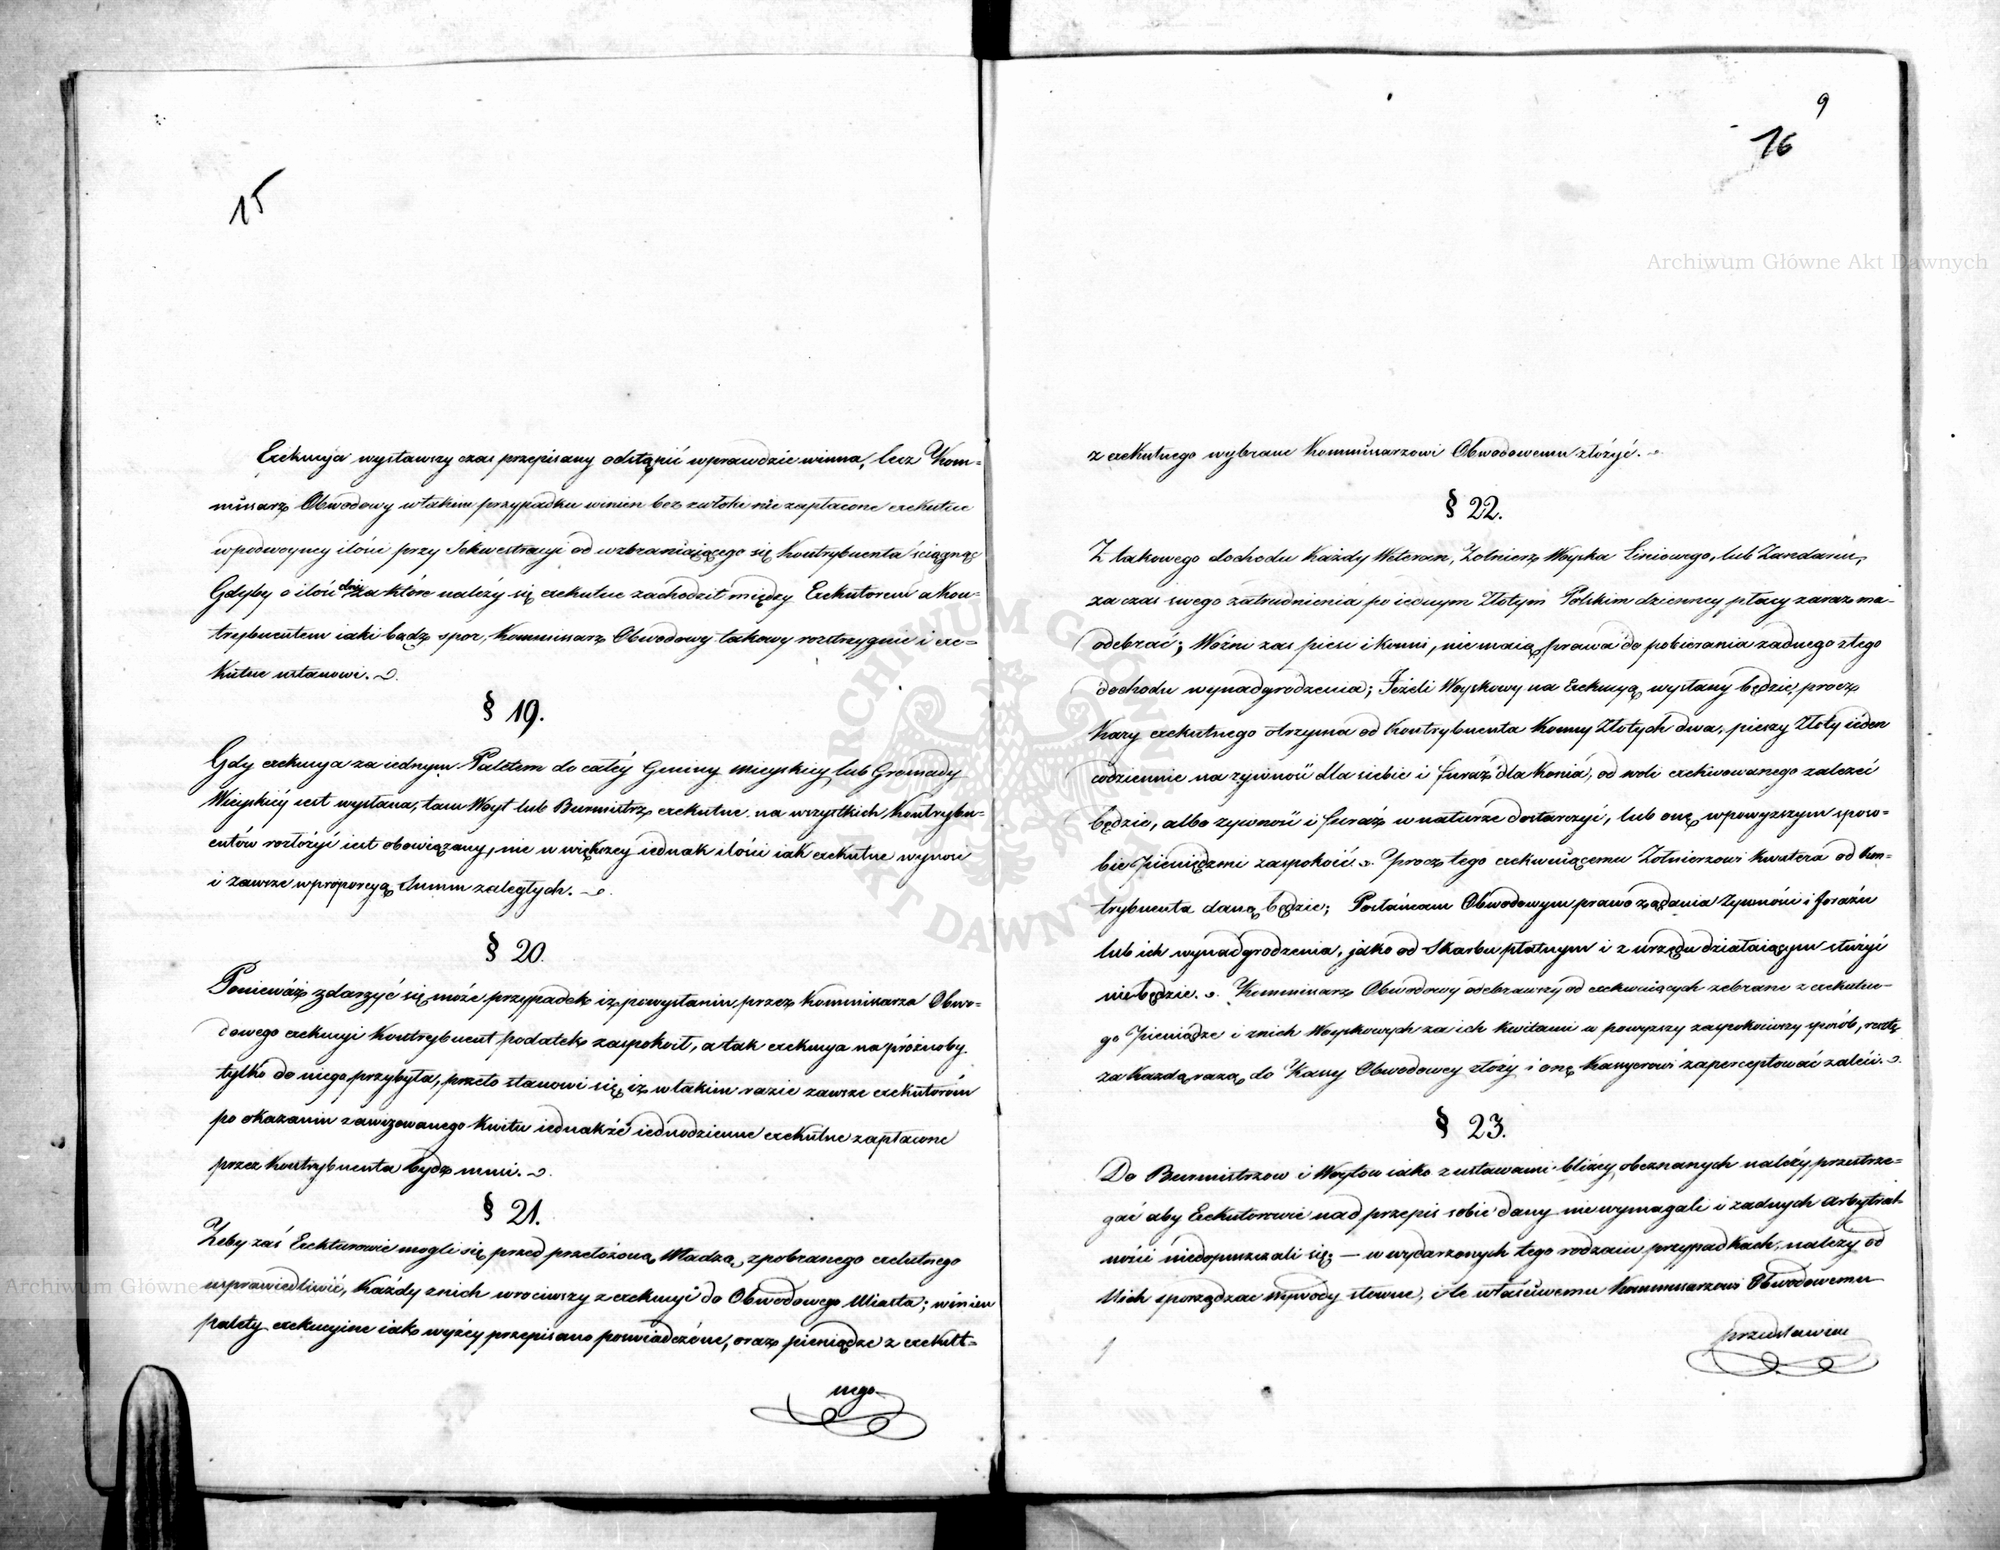 15
Exekucya wystawszy czas przepisany odstąpić wprawdzie winna, lecz Kom-
missarz Obwodowy wtakim przypadku winien bez zwłoki nie zapłacone exekutne
wpodwoyney ilości przy Sekwestracyi od wzbraniaiącego się Kontrybuenta ściągnąć
Gdyby o ilość dni za które należy się exekutne zachodził między Exekutorem a Kon-
trybuentem iaki bądź spor, Kommissarz Obwodowy takowy rozstrzygnie i exe-
kutne ustanowi.
§ 19.
Gdy exekucya za iednym Paletem do całéy Gminy mieyskiey lub Gromady
Wieyskiéy iest wysłana, tam Woyt lub Burmistrz exekutne na wszystkich Kontrybu-
entów rozłożyć iest obowiązany, nie w większey iednak ilości iak exekutne wynosi
i zawsze w proporcyą Summ zaległych.
§ 20.
Ponieważ zdarzyć się może przypadek iż powysłaniu przez Kommissarza Obwo-
dowego exekucyi Kontrybuent podatek zaspokoił, a tak exekucya na próżnoby
tylko do niego przybyła, przeto stanowi się iż w takim razie zawsze exekutorom
po okazaniu zawizowanego Kwitu iednakże iednodzienne exekutne zapłacone
przez Kontrybuenta bydź musi.
§ 21.
Żeby zaś Exekturowie mogli się przed przełożoną Władzą, zpobranego exekutnego
usprawiedliwić, Każdy znich wrociwszy z exekucyi do Obwodowego Miasta; winien
palety exekucyine iak wyżéy przepisano poswiadczone, oraz pieniądze z exekut-
nego
9
16
z exekutnego wybrane Kommissarzowi Obwodowemu złożyć.
§ 22.
Z takowego dochodu Każdy Weteran, Zołnierz Woyska Liniowego, lub Zandarm,
za czas swego zatrudnienia po iednym Złotym Polskim dzienney płacy zaraz ma
odebrać; Woźni zas piesi i konni, nie maią prawa do pobierania zadnego ztego
dochodu wynadgrodzenia; Jeżeli Woyskowy na Exekucyą wysłany będzie, procz
Kary exekutnego otrzyma od Kontrybuenta Konny Złotych dwa, pieszy Złoty ieden
codziennie na zywność dla siebie i furaż dla Konia, od woli exekwowanego zalezeć
będzie, albo zywność i furaż w naturze dostarczyć, lub onę wpowyzszym sposo-
bie pieniędzmi zaspokoić. Procz tego exekwuiącemu Zołnierzowi Kwatera od Kon-
trybuenta daną będzie; Posłańcam Obwodowym prawo ządania Zywności i forazu
lub ich wynadgrodzenia, jako od Skarbu płatnym i z urzędu działaiącym służyć
niebędzie. Kommissarz Obwodowy odebrawszy od exekwuiących zebrane z exekutne-
go Pieniądze i znich Woyskowych za ich kwitami w powyzszy zaspokoiwszy sposób, resztę
za Kazdą razą do Kassy Obwodowey złoży i onę Kassyerowi zaperceptować zaleci.
§ 23.
Do Burmistrzow i Woytow iako z ustawami bliżey obeznanych należy przestrze-
gać aby Exekutorowie nad przepis sobie dany nie wymagali i zadnych arbytral-
ności niedopuszczali się; — w wydarzonych tego rodzaiu przypadkach, nalezy od
Nich sporządzac wywody słowne, i te właściwemu Kommissarzowi Obwodowemu
przedstawiac
Archiwum Główne Akt Dawnych
Archiwum Główne
ARCHIWUM GŁÓWNE
AKT DAWNYCH